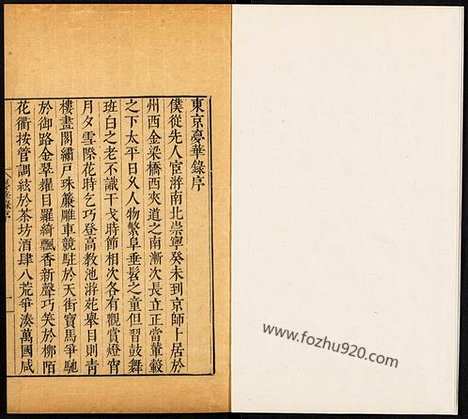 東京夢華錄序
僕從先人宦游南北崇寧癸未到京師卜居於
州西金梁橋西夾道之南漸次長立正當輦轂
之下太平日久人物繁阜垂髫之童但習鼓舞
班白之老不識干戈時節相次各有觀賞燈宵
月夕雪際花時乞巧登高教池游苑舉目則青
樓畫閣繡戶珠簾雕車競駐於天街寶馬爭馳
於御路金翠耀目羅綺飄香新聲巧笑於柳陌
花衢按管調絃於茶坊酒肆八荒爭湊萬國咸
www.fozhu920.com